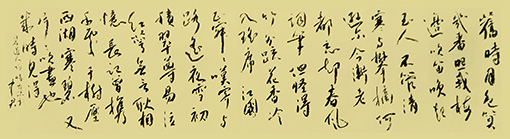 舊時月色算
幾番照我梅
邊吹笛喚起
玉人不管清
寒與攀摘何
遜而今漸老
都忘却春風
詞筆但怪得
竹外疏花香冷
入瑤席江國
正寂寂嘆寄与
路遥夜雪初
積翠尊易泣
紅萼無言耿相
憶長記曾攜
手處千樹壓
西湖寒碧又
片片吹盡也
幾時見得